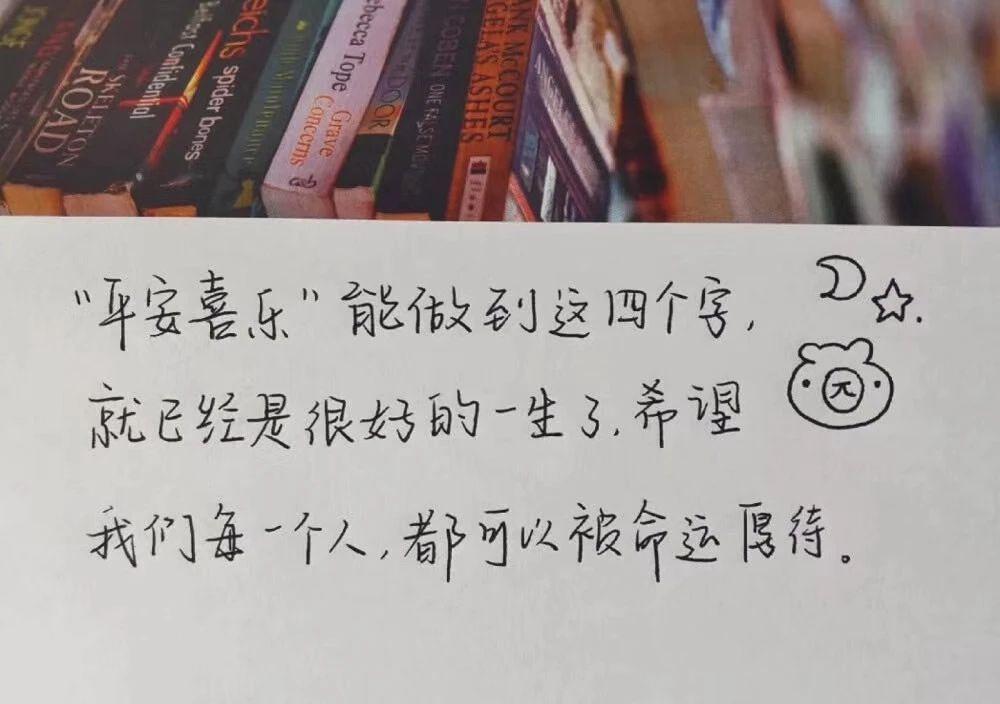 THE SKELETON ROAD
Kolleges Confidential
eichs spider bones
Rebecca Tope Grave Concerns
DOOR
COBEN ONE FALSE MOVE
FRANK McCOURT
ANGELAS ASHES
"平安喜乐"能做到这四个字,
就已经是很好的一生了.希望
我们每一个人,都可以被命运厚待。